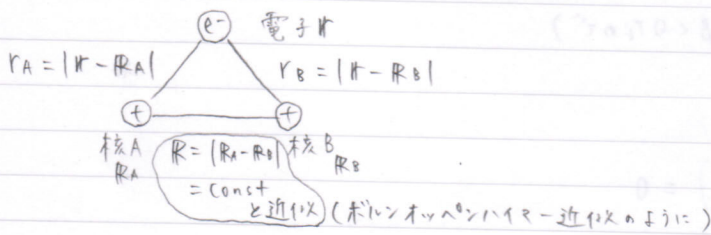 e- 電子 𝕣
rA = |𝕣 - ℝA|
rB = |𝕣 - ℝB|
+ +
核A ℝ = |ℝA - ℝB| 核B
ℝA ℝB
= const
と近似 (ボルンオッペンハイマー近似のように)
= 0